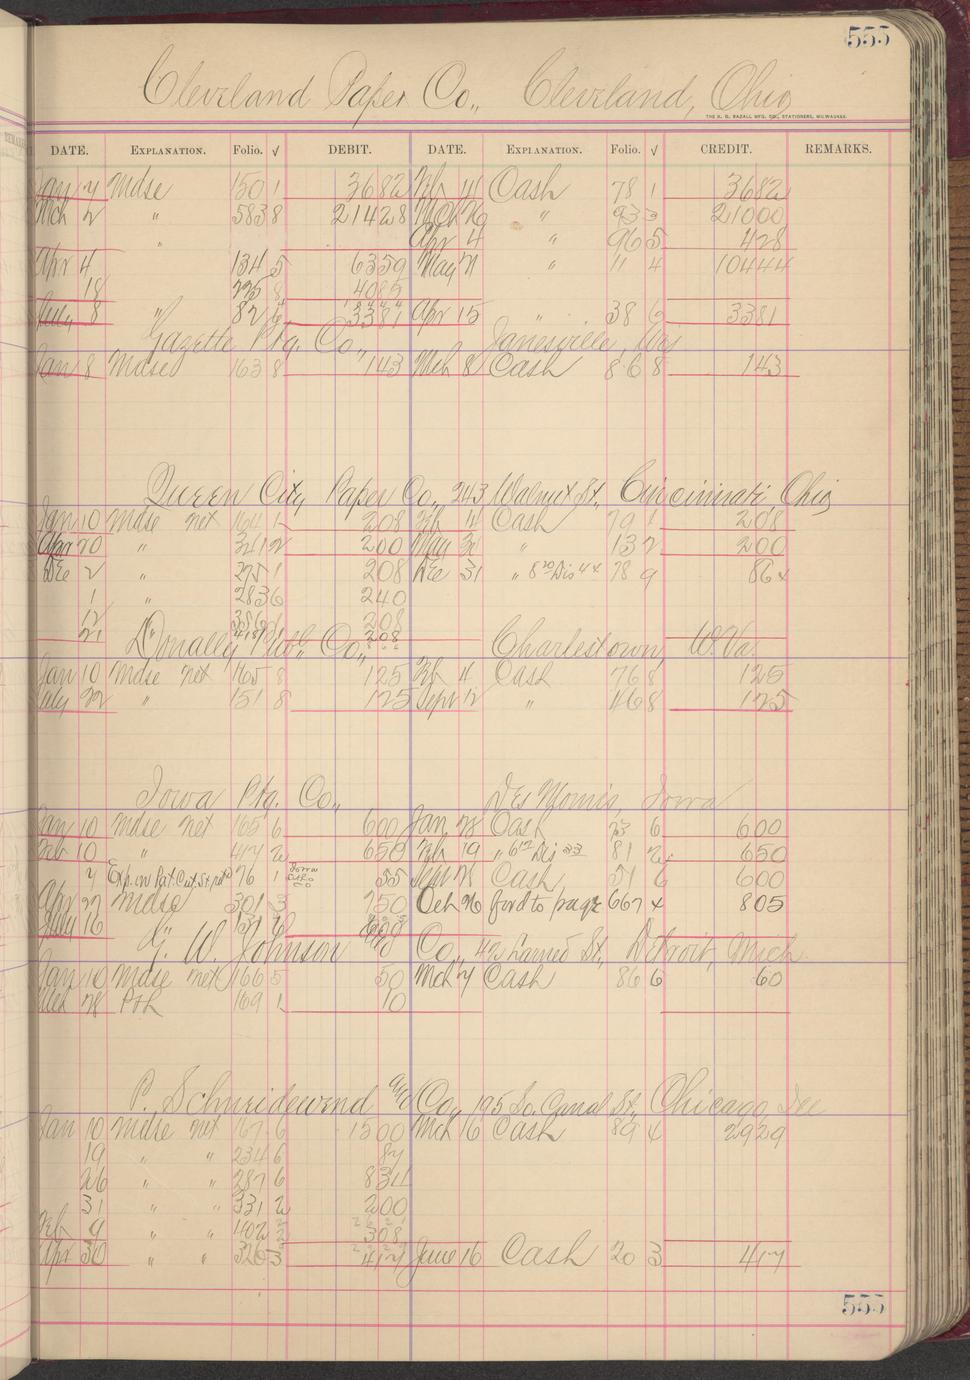 555
Cleveland Paper Co., Cleveland, Ohio
THE H. G. RAZALL MFG. CO., STATIONERS, MILWAUKEE.
DATE. EXPLANATION. Folio. √ DEBIT. DATE. EXPLANATION. Folio. √ CREDIT. REMARKS.
Jan 7 Mdse 150 1 3682 Feb 4 Cash 78 1 3682
Mch 2 " 583 8 21428 Mch 26 " 93 3 21000
" Apr 4 " 96 5 428
Apr 4 134 5 6359 May 21 " 11 4 10444
18 225 8 4085
July 8 " 82 6 3381 Apr 15 " 38 6 3381
Gazette Ptg. Co., Janesville, Wis
Jan 8 Mdse 163 8 143 Mch 8 Cash 86 8 143
Queen City Paper Co., 243 Walnut St., Cincinnati Ohio
Jan 10 Mdse net 164 1 208 Feb 4 Cash 79 1 208
Apr 20 " 341 2 200 May 31 " 13 2 200
Dec 2 " 275 1 208 Dec 31 " 8 70 Dis 44 78 9 864
1 " 283 6 240
12 208
21 " 208
Donally Pub. Co., Charlestown, W. Va.
Jan 10 Mdse net 165 8 125 Feb 4 Cash 76 8 125
July 22 " 151 8 125 Sept 12 " 46 8 125
Iowa Ptg. Co., Des Moines, Iowa
Jan 10 Mdse net 165 6 600 Jan 28 Cash 73 6 600
Feb 10 " 417 2 650 Feb 19 " 6 12 Dis 33 81 2 650
7 Exp. on Pat. Cut. St. 76 1 55 Sept 28 Cash 51 6 600
Apr 27 Mdse 301 3 750 Oct 26 ford to page 667 4 805
July 16 " 131 6 600
G. W. Johnson Co., 42 Larned St., Detroit, Mich.
Jan 10 Mdse net 166 5 50 Mch 7 Cash 86 6 60
Mch 28 Ptk 169 1 10
P. Schneidewend & Co., 195 So. Canal St., Chicago, Ill
Jan 10 Mdse net 167 6 1500 Mch 16 Cash 89 4 2929
19 " " 234 6 87
26 " " 287 6 834
31 " " 331 2 200
Feb 9 " " 402 2 308
Apr 30 " " 326 3 417 June 16 Cash 20 3 417
555